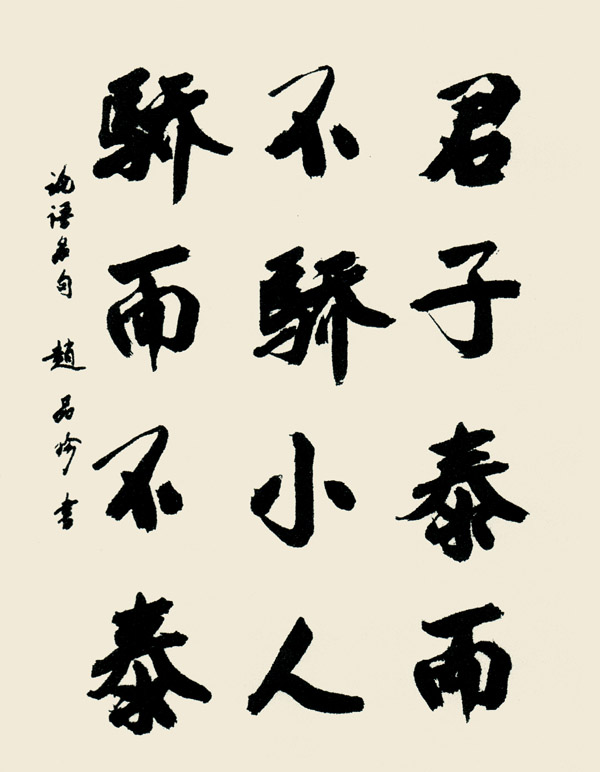 君子泰而
不骄小人
骄而不泰
论语名句 趙品珍书